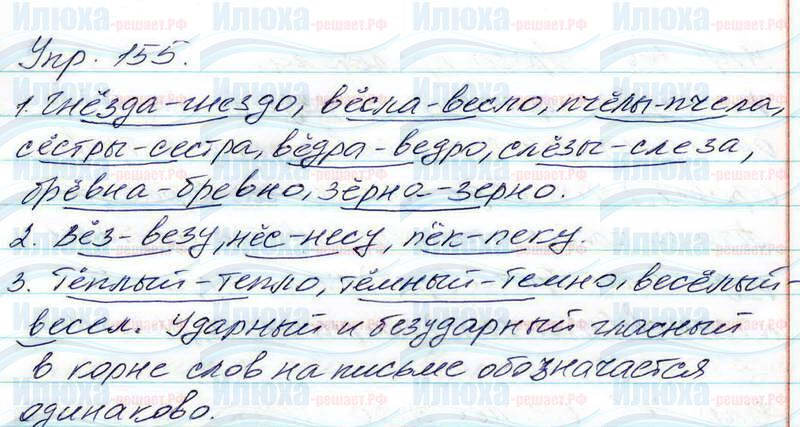 Упр. 155.
1. Гнёзда-гнездо, вёсла-весло, пчёлы-пчела,
сёстры-сестра, вёдра-ведро, слёзы-слеза,
брёвна-бревно, зёрна-зерно.
2. Вёз-везу, нёс-несу, пёк-пеку.
3. Тёплый-тепло, тёмный-темно, весёлый-
весел. Ударный и безударный гласный
в корне слов на письме обозначается
одинаково.